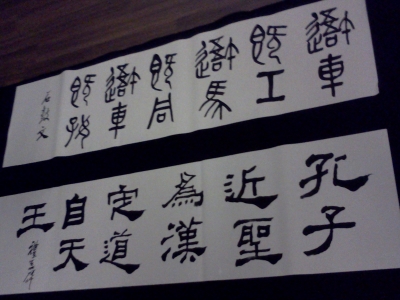 車
既工
馬
既同
車
既好
石鼓文
孔子
近聖
為漢
定道
自天
王
禮器碑